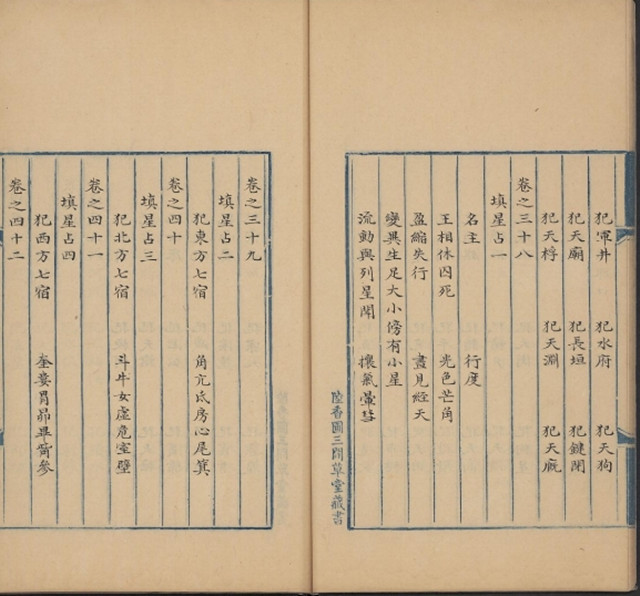 犯軍井 犯水府 犯天狗
犯天廟 犯長垣 犯鍵閉
犯天桴 犯天淵 犯天廐
卷之三十八
填星占一
名主 行度
王相休囚死 光色芒角
盈縮失行 晝見經天
變異生足大小傍有小星
流動與列星鬬 攘氣暈彗
陸香圃三間草堂藏書
卷之三十九
填星占二
犯東方七宿 角亢氐房心尾箕
卷之四十
填星占三
犯北方七宿 斗牛女虛危室壁
卷之四十一
填星占四
犯西方七宿 奎婁胃昴畢觜參
卷之四十二